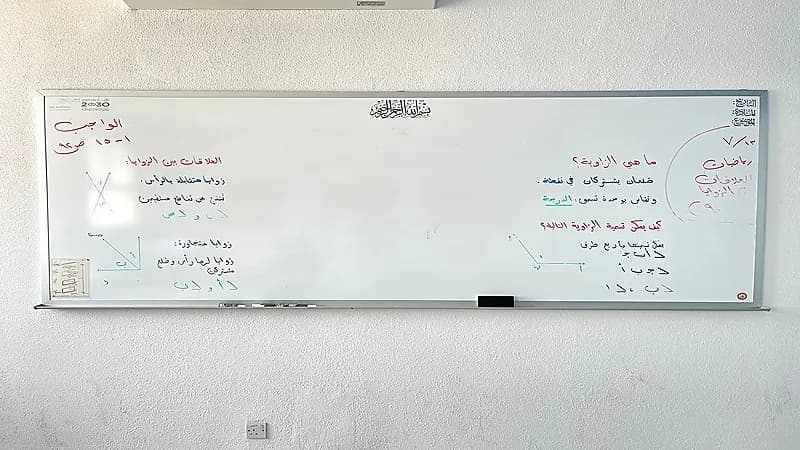 بسم الله الرحمن الرحيم
التاريخ:
المادة:
٧/١٣
رياضيات
العلاقات
الزوايا
ما هي الزاوية؟
ضلعان يشتركان في نقطة.
وتقاس بوحدة تسمى الدرجة
كيف يمكن تسمية الزاوية التالية؟
يمكن تسميتها بأربع طرق
العلاقات بين الزوايا:
زوايا متقابلة بالرأس:
تنتج من تقاطع مستقيمين
زوايا متجاورة:
زوايا لها رأس وضلع
مشتركان
الواجب
١ - ١٥ ص ٩٢
2030